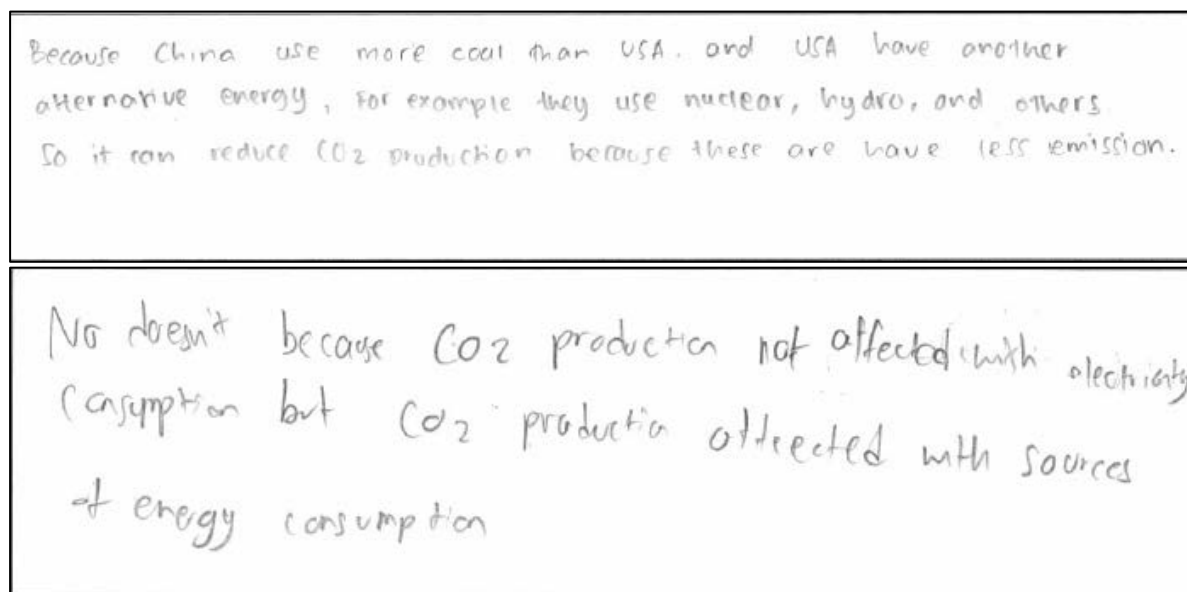 Because China use more coal than USA. and USA have another
alternative energy, For example they use nuclear, hydro, and others
So it can reduce CO2 production because these are have less emission.
No doesn't because CO2 production not affected with electricity
Consumption but CO2 production affected with sources
of energy consumption